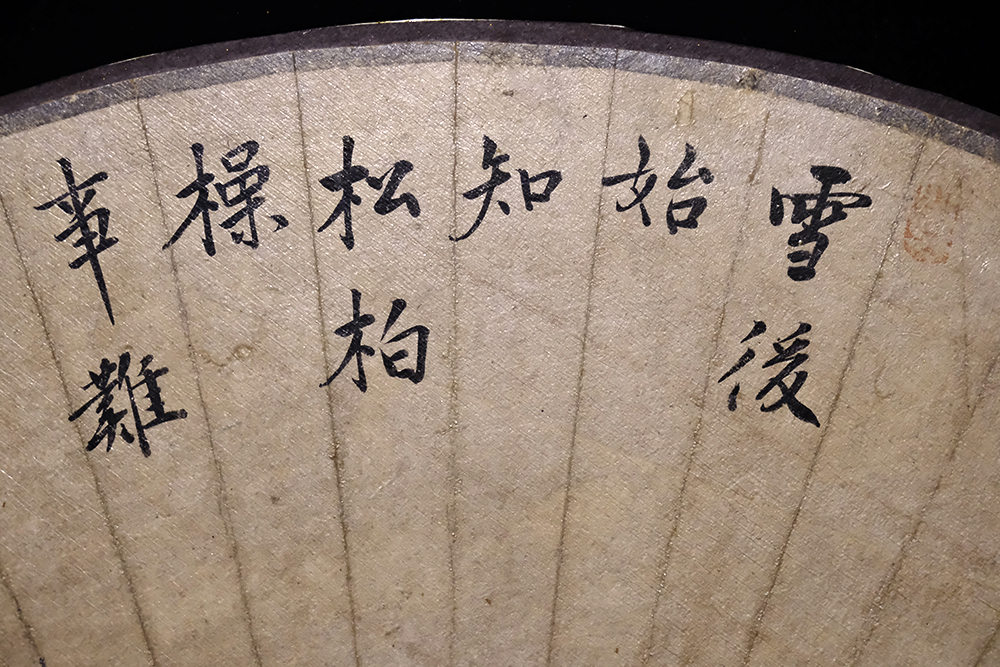 雪後
始
知
松柏
操
事難